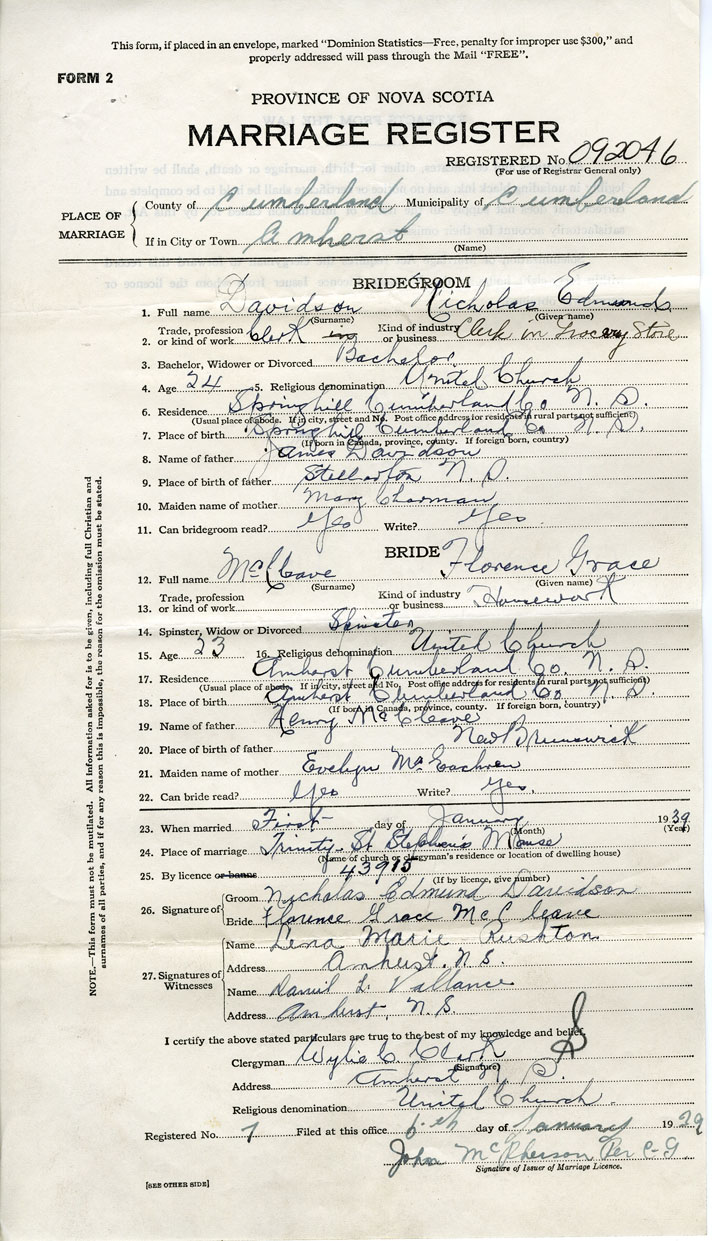 This form, if placed in an envelope, marked "Dominion Statistics—Free, penalty for improper use $300," and
properly addressed will pass through the Mail "FREE".
FORM 2
PROVINCE OF NOVA SCOTIA
MARRIAGE REGISTER
REGISTERED No. 092046
(For use of Registrar General only)
PLACE OF MARRIAGE
County of Cumberland Municipality of Cumberland
If in City or Town Amherst
(Name)
BRIDEGROOM
1. Full name Davidson Nicholas Edmund
(Surname) (Given name)
2. Trade, profession or kind of work Clerk in Kind of industry or business Clerk in Grocery Store
3. Bachelor, Widower or Divorced Bachelor
4. Age 24 5. Religious denomination United Church
6. Residence Springhill Cumberland Co N. S.
(Usual place of abode. If in city, street and No. Post office address for residents in rural parts not sufficient)
7. Place of birth Springhill Cumberland Co N. S.
(If born in Canada, province, county. If foreign born, country)
8. Name of father James Davidson
9. Place of birth of father Stellarton N. S.
10. Maiden name of mother Mary Charman
11. Can bridegroom read? Yes Write? Yes
BRIDE
12. Full name McCleave Florence Grace
(Surname) (Given name)
13. Trade, profession or kind of work Kind of industry or business Housework
14. Spinster, Widow or Divorced Spinster
15. Age 23 16. Religious denomination United Church
17. Residence Amherst Cumberland Co. N. S.
(Usual place of abode. If in city, street and No. Post office address for residents in rural parts not sufficient)
18. Place of birth Amherst Cumberland Co N. S.
(If born in Canada, province, county. If foreign born, country)
19. Name of father Henry McCleave
20. Place of birth of father New Brunswick
21. Maiden name of mother Evelyn McEachren
22. Can bride read? Yes Write? Yes,
23. When married First day of January 1939
(Month) (Year)
24. Place of marriage Trinity-St Stephen's Manse
(Name of church or clergyman's residence or location of dwelling house)
25. By licence or banns 43915
(If by licence, give number)
26. Signature of
Groom Nicholas Edmund Davidson
Bride Florence Grace McCleave
27. Signatures of Witnesses
Name Lena Marie Rushton
Address Amherst, N.S.
Name Daniel L. Vallance
Address Amherst, N.S.
I certify the above stated particulars are true to the best of my knowledge and belief.
Clergyman Wylie C. Clark
(Signature)
Address Amherst N. S.
Religious denomination United Church
Registered No. 7 Filed at this office 6th day of January 1939
John McPherson Per C-G
Signature of Issuer of Marriage Licence.
[SEE OTHER SIDE]
NOTE.—This form must not be mutilated. All information asked for is to be given, including full Christian and
surnames of all parties, and if for any reason this is impossible, the reason for the omission must be stated.